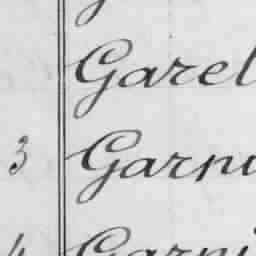 Garel
3 Garni
4 Garni